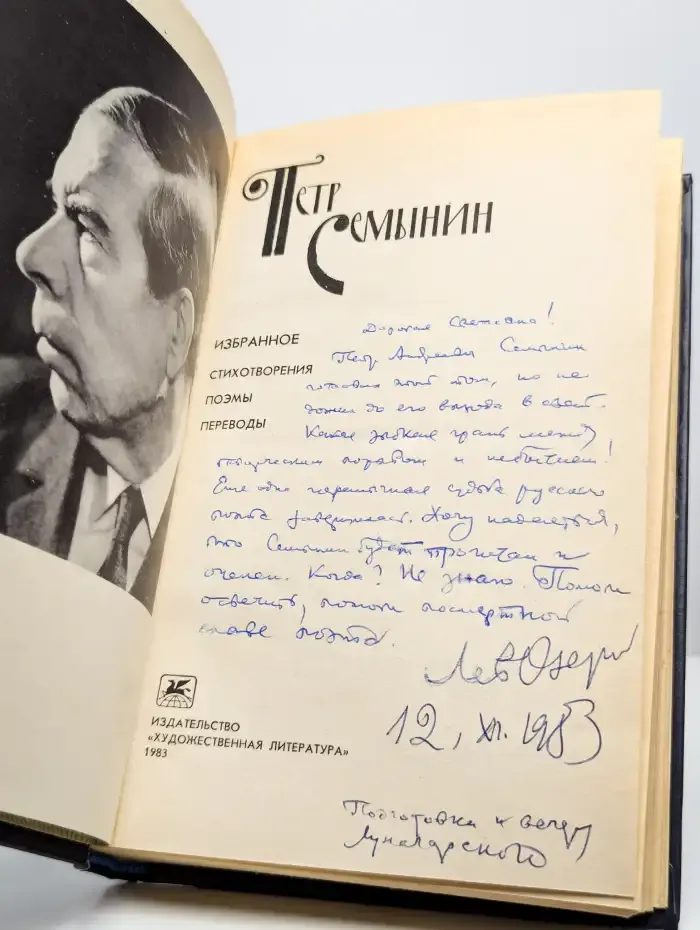 Петр
Семынин
ИЗБРАННОЕ
СТИХОТВОРЕНИЯ
ПОЭМЫ
ПЕРЕВОДЫ
Дорогая Светлана!
Петр Андреевич Семынин
готовил этот том, но не
дожил до его выхода в свет.
Какая зыбкая грань между
творческим порывом и небытием!
Еще одна горемычная судьба русского
поэта завершилась. Хочу надеяться,
что Семынин будет прочитан и
оценен. Когда? Не знаю. Помоги
осветить, помоги посмертной
славе поэта.
Лев Озеров
12, XI. 1983
ИЗДАТЕЛЬСТВО
«ХУДОЖЕСТВЕННАЯ ЛИТЕРАТУРА»
1983
Подготовка к вечеру
Луначарского